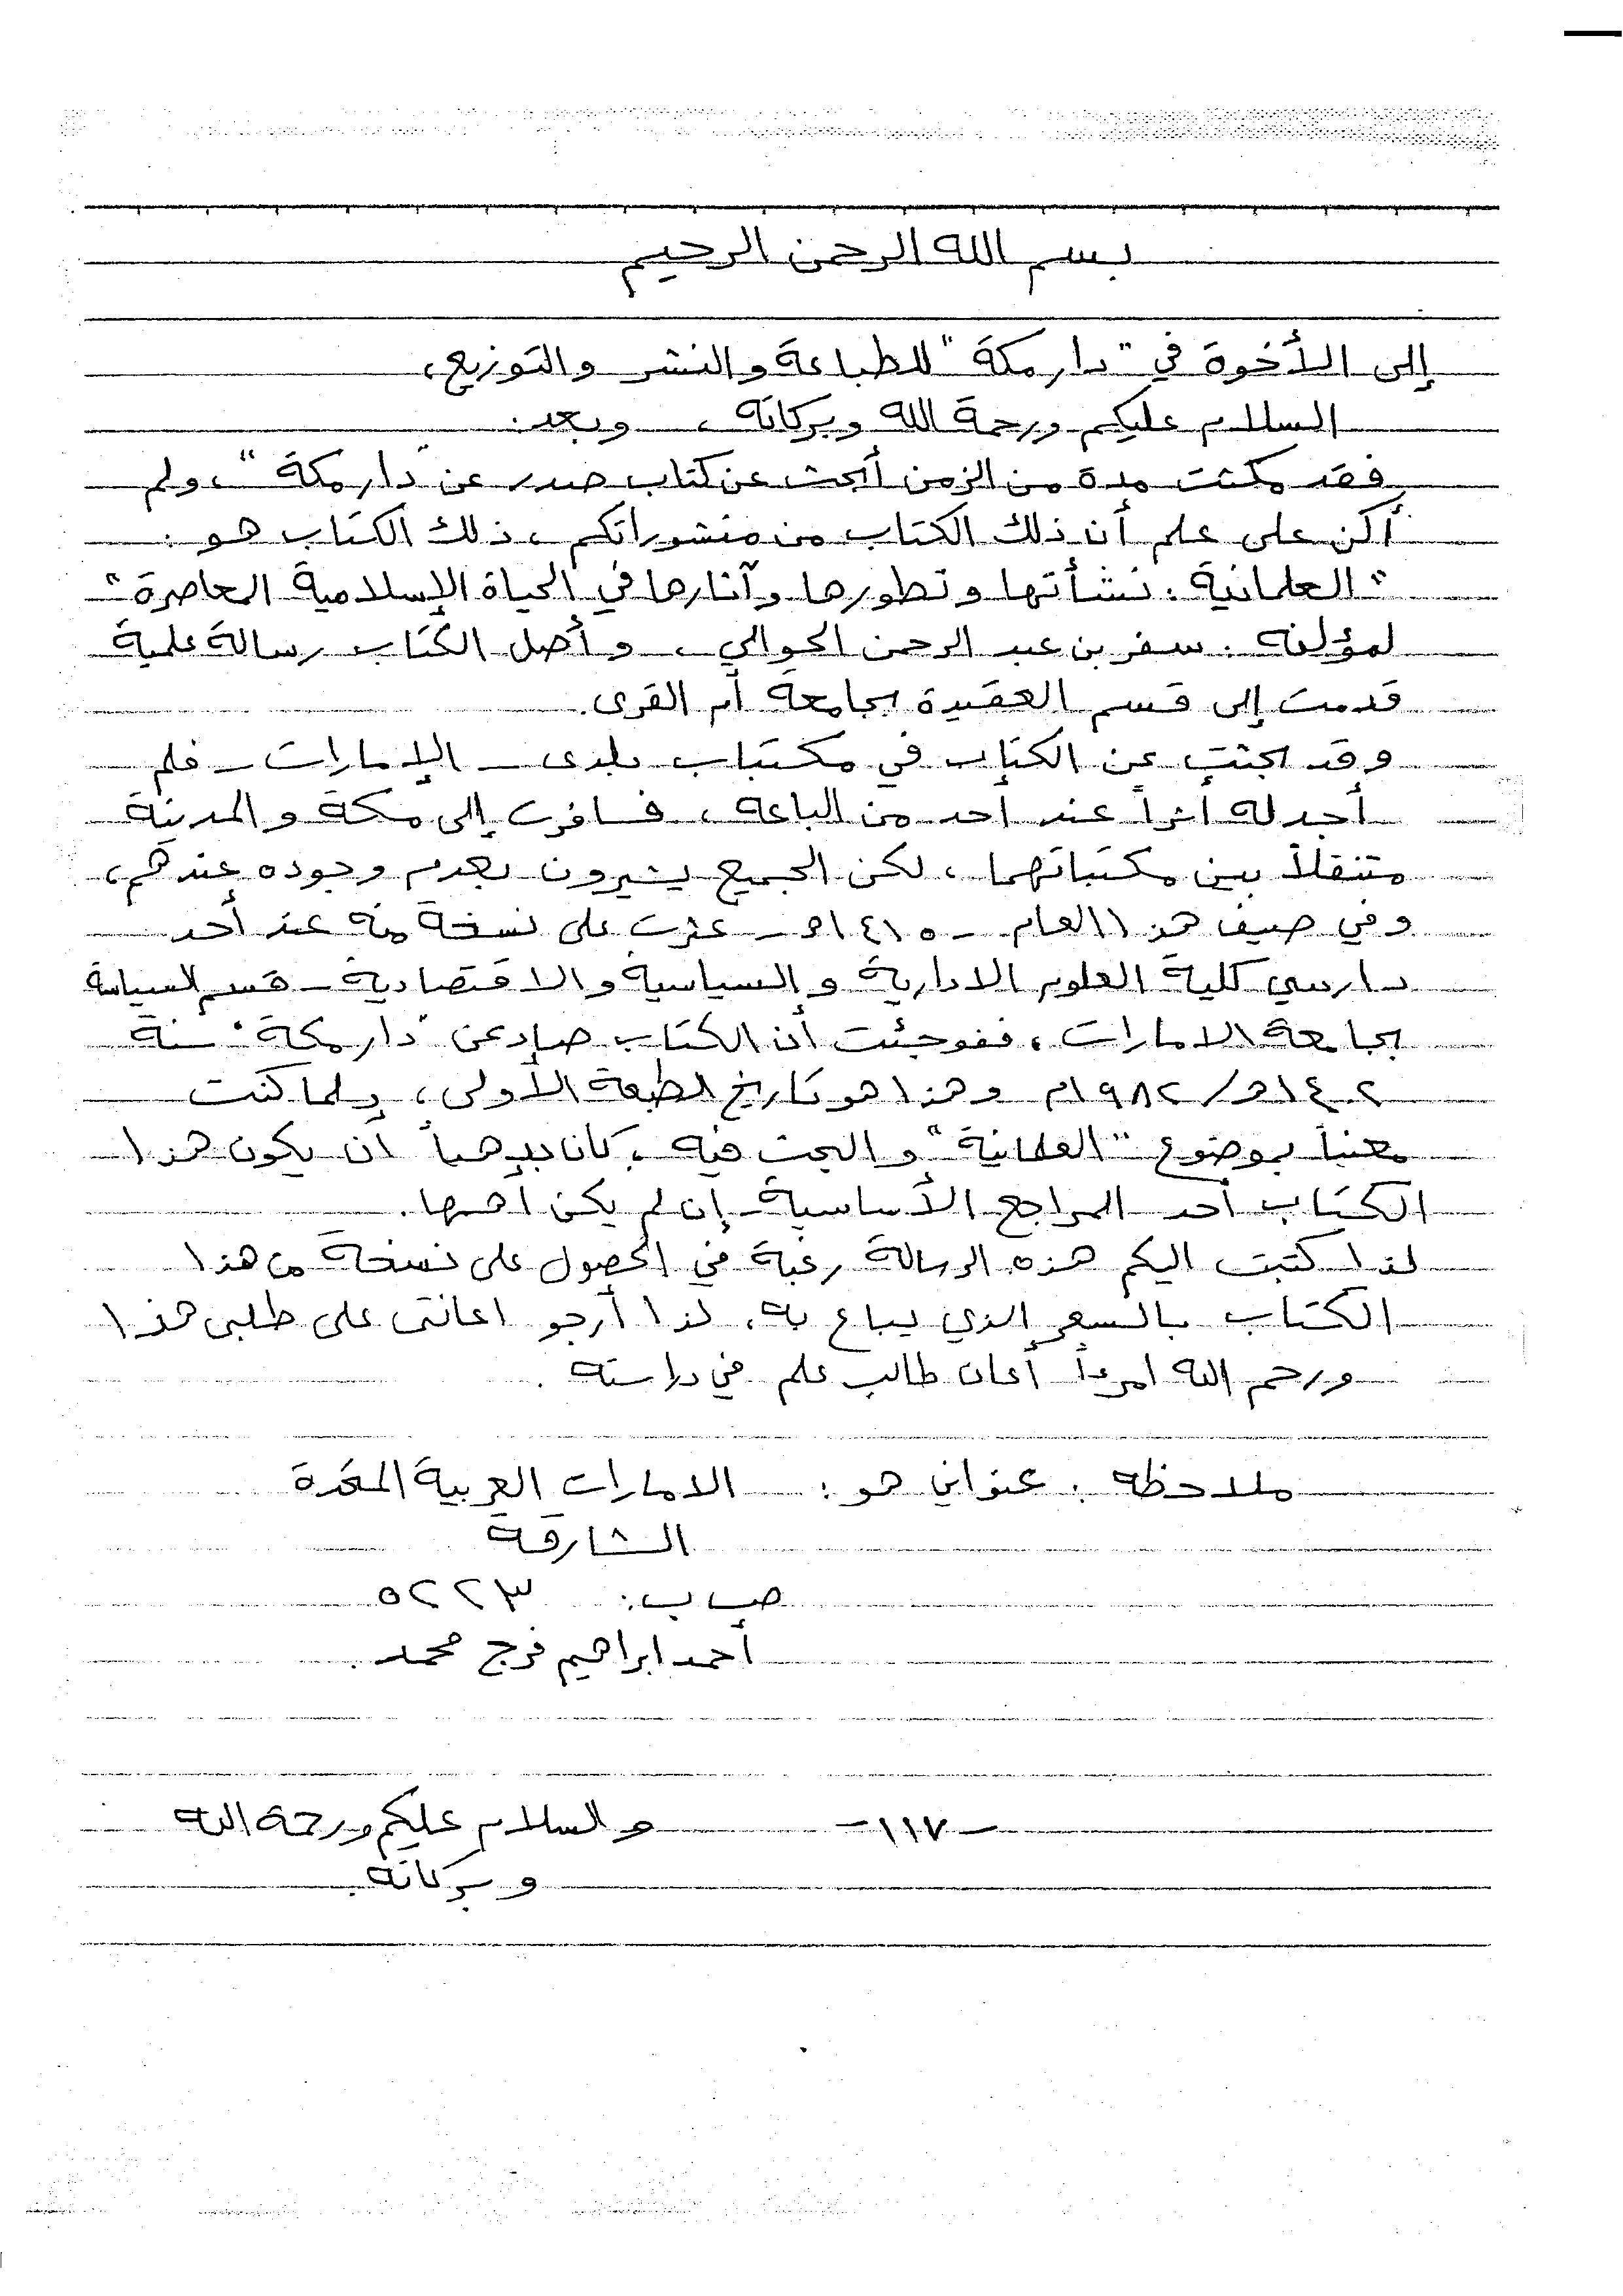 بسم الله الرحمن الرحيم
إلى الأخوة في "دار مكة" للطباعة والنشر والتوزيع،
السلام عليكم ورحمة الله وبركاته، وبعد:
فقد مكثت مدة من الزمن أبحث عن كتاب صدر عن "دار مكة"، ولم
أكن على علم أن ذلك الكتاب من منشوراتكم، ذلك الكتاب هو:
"العلمانية: نشأتها وتطورها وآثارها في الحياة الإسلامية المعاصرة"
لمؤلفه: سفر بن عبد الرحمن الحوالي، وأصل الكتاب رسالة علمية
قدمت إلى قسم العقيدة بجامعة أم القرى.
وقد بحثت عن الكتاب في مكتبات بلدى - الإمارات - فلم
أجد له أثراً عند أحد من الباعه، فسافرت إلى مكة والمدينة
متنقلاً بين مكتباتهما، لكن الجميع يشيرون بعدم وجوده عندهم،
وفي صيف هذا العام - ١٤١٥هـ - عثرت على نسخة منه عند أحد
دارسي كلية العلوم الادارية والسياسية والاقتصادية - قسم السياسة
بجامعة الامارات، ففوجئت أن الكتاب صادر عن "دار مكة" سنة
١٤٠٢هـ / ١٩٨٢م وهذا هو تاريخ الطبعة الأولى، ولما كنت
معنياً بموضوع "العلمانية" والبحث فيه، كان بديهياً أن يكون هذا
الكتاب أحد المراجع الأساسية - إن لم يكن أهمها.
لذا كتبت اليكم هذه الرسالة رغبة في الحصول على نسخة من هذا
الكتاب بالسعر الذي يباع به، لذا أرجو اعانتى على طلبى هذا
ورحم الله امرءاً أعان طالب علم في دراسته.
ملاحظه: عنواني هو: الامارات العربية المتحدة
الشارقة
ص ب: ٥٢٢٣
أحمد ابراهيم فرج محمد.
-١١٧- والسلام عليكم ورحمة الله
وبركاته.